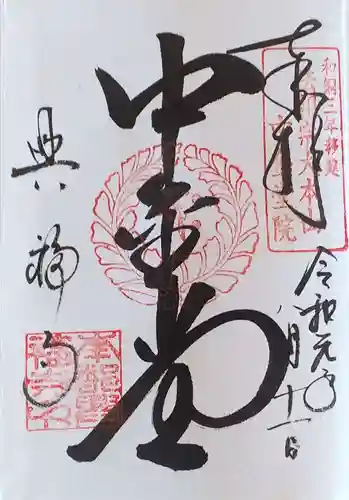 奉拝
和銅三年移築
法相宗大本山
令和元年
八月十一日
中金堂
興福寺